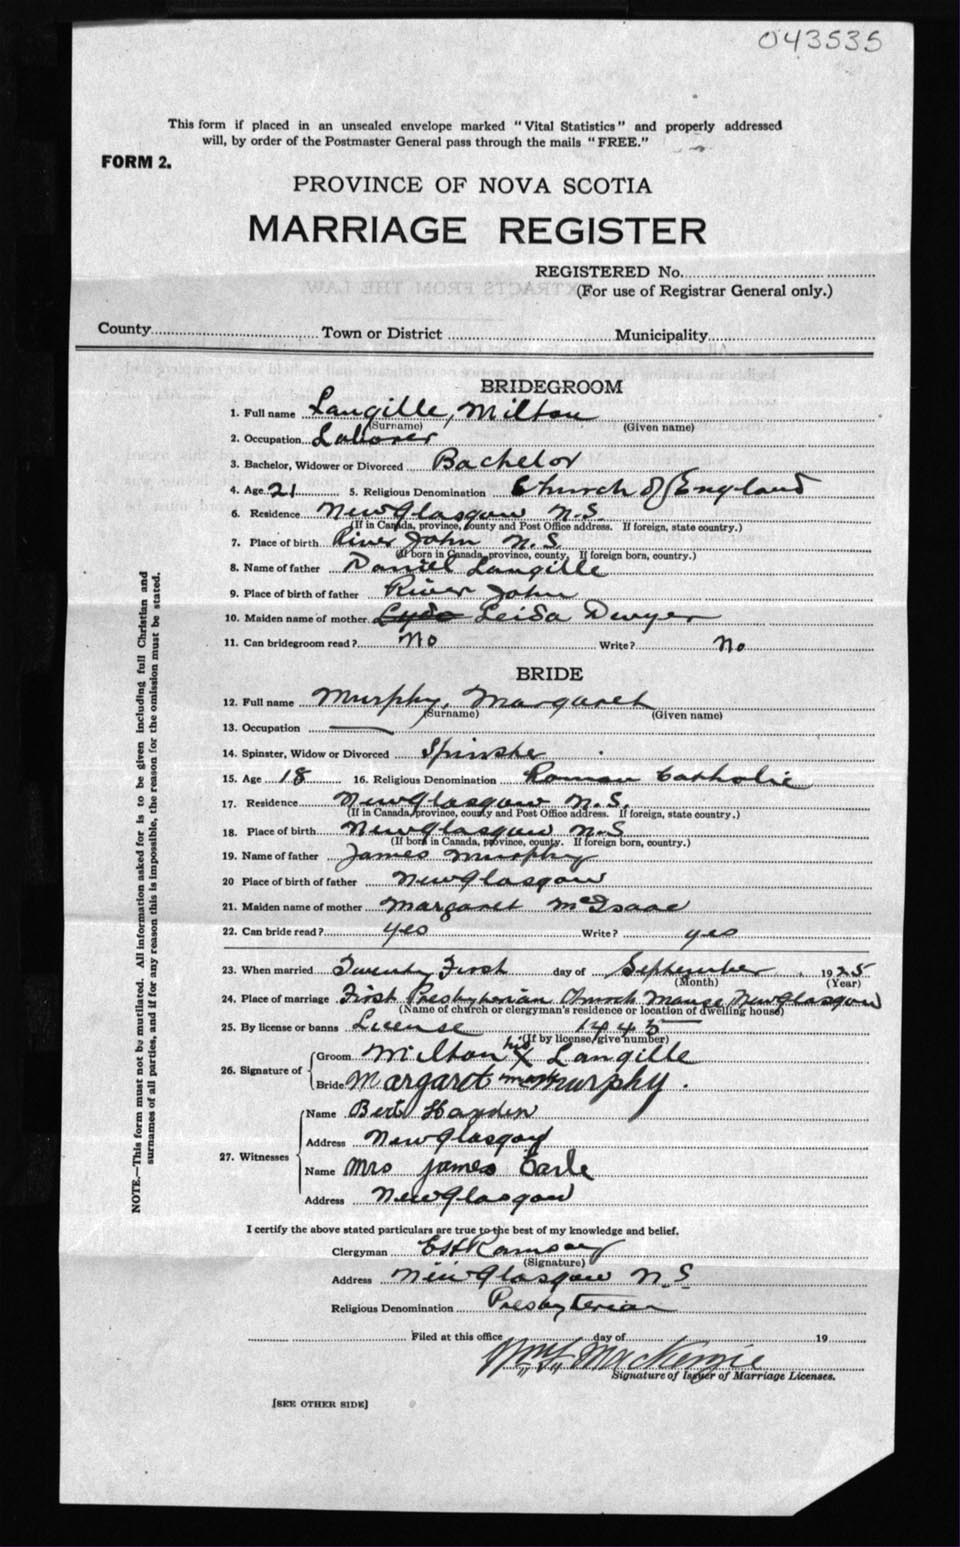 043535
This form if placed in an unsealed envelope marked "Vital Statistics" and properly addressed
will, by order of the Postmaster General pass through the mails "FREE."
FORM 2.
PROVINCE OF NOVA SCOTIA
MARRIAGE REGISTER
REGISTERED No.
(For use of Registrar General only.)
County Town or District Municipality
BRIDEGROOM
1. Full name Langille, Milton
(Surname) (Given name)
2. Occupation Laborer
3. Bachelor, Widower or Divorced Bachelor
4. Age 21 5. Religious Denomination Church of England
6. Residence New Glasgow N.S.
(If in Canada, province, county and Post Office address. If foreign, state country.)
7. Place of birth River John N.S.
(If born in Canada, province, county. If foreign born, country.)
8. Name of father Daniel Langille
9. Place of birth of father River John
10. Maiden name of mother Leida Dwyer
11. Can bridegroom read? No Write? No
BRIDE
12. Full name Murphy, Margaret
(Surname) (Given name)
13. Occupation
14. Spinster, Widow or Divorced Spinster
15. Age 18 16. Religious Denomination Roman Catholic
17. Residence New Glasgow N.S.
(If in Canada, province, county and Post Office address. If foreign, state country.)
18. Place of birth New Glasgow N.S
(If born in Canada, province, county. If foreign born, country.)
19. Name of father James Murphy
20 Place of birth of father New Glasgow
21. Maiden name of mother Margaret McIsaac
22. Can bride read? yes Write? yes
23. When married Twenty First day of September 1925
(Month) (Year)
24. Place of marriage First Presbyterian Church Manse, New Glasgow
(Name of church or clergyman's residence or location of dwelling house)
25. By license or banns License 1445
(If by license, give number)
26. Signature of
Groom Milton his X Langille
mark
Bride Margaret Murphy.
27. Witnesses
Name Bert Hayden
Address New Glasgow
Name Mrs James Earle
Address New Glasgow
I certify the above stated particulars are true to the best of my knowledge and belief.
Clergyman E H Ramsay
(Signature)
Address New Glasgow N.S
Religious Denomination Presbyterian
Filed at this office day of 19
MacKenzie
Signature of Issuer of Marriage Licenses.
[SEE OTHER SIDE]
NOTE.—This form must not be mutilated. All information asked for is to be given including full Christian and
surnames of all parties, and if for any reason this is impossible, the reason for the omission must be stated.